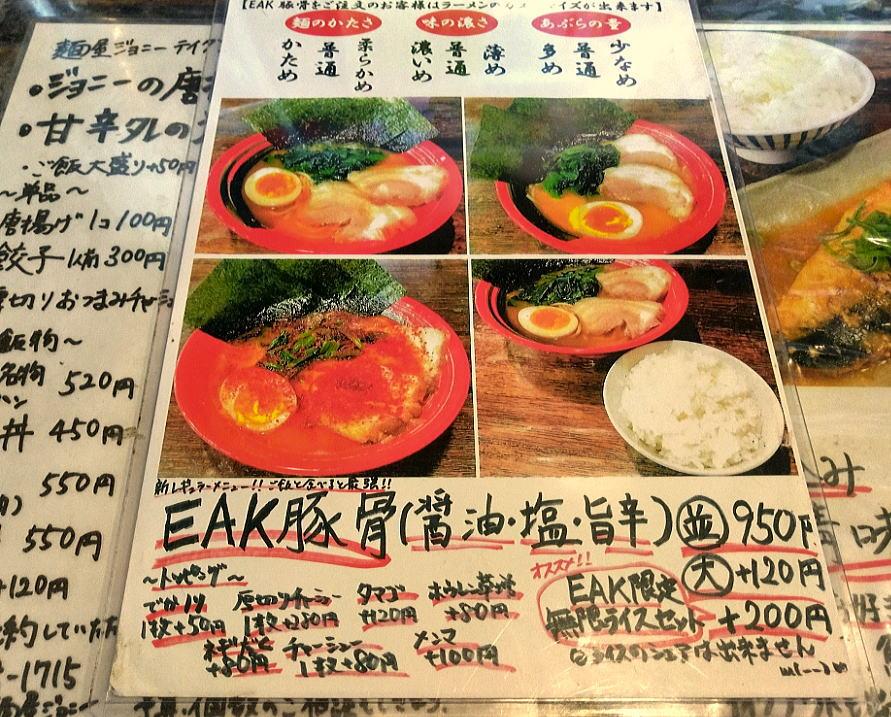 【EAK豚骨をご注文のお客様はラーメンの
イズが出来ます】
麺のかたさ 味の濃さ あぶらの量
かため 普通 柔らかめ
濃いめ 普通 薄め
多め 普通 少なめ
新レギュラーメニュー!!ご飯と食べると最強!!
EAK豚骨(醤油・塩・旨辛) 並 950円
大 +120円
オススメ!!
EAK限定
無限ライスセット +200円
ライスのシェアは出来ません
~トッピング~
でかのり 1枚+50円
厚切りチャーシュー 1枚+280円
タマゴ +120円
ほうれん草増 +80円
ネギだく +80円
チャーシュー 1枚+80円
メンマ +100円
麺屋ジョニー テイク
・ジョニーの唐
・甘辛タレの
・ご飯大盛り+50円
~単品~
唐揚げ 1コ 100円
餃子 1人前 300円
厚切りおつまみチャーシ
飯物~
名物
ハン 520円
丼 450円
550円
550円
+120円
約していただ
-1715
麺屋ジョニー